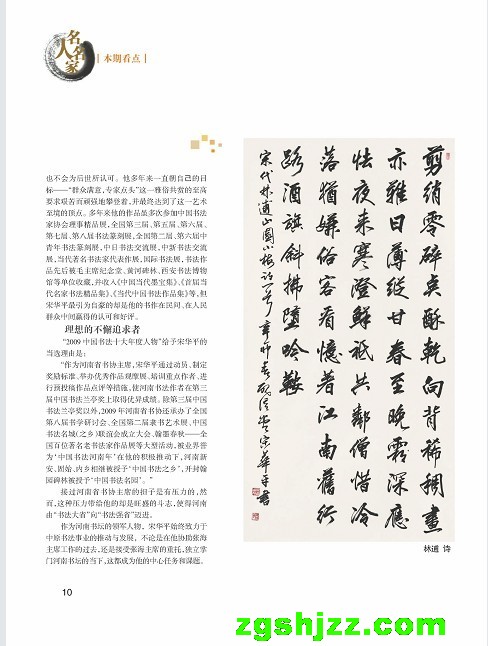 名人名家
本期看点
也不会为后世所认可。他多年来一直朝自己的目
标——“群众满意，专家点头”这一雅俗共赏的至高
要求艰苦而顽强地攀登着，并最终达到了这一艺术
至境的顶点。多年来他的作品虽多次参加中国书法
家协会理事精品展，全国第三届、第五届、第六届、
第七届、第八届书法篆刻展，全国第二届、第六届中
青年书法篆刻展，中日书法交流展，中新书法交流
展，当代著名书法家代表作展，国际书法展，书法作
品先后被毛主席纪念堂、黄河碑林、西安书法博物
馆等单位收藏，并收入《中国当代墨宝集》、《首届当
代名家书法精品集》、《当代中国书法作品集》等，但
宋华平最引为自豪的却是他的书作在民间、在人民
群众中间赢得的认可和好评。
理想的不懈追求者
“2009中国书法十大年度人物”给予宋华平的
当选理由是：
“作为河南省书协主席，宋华平通过动员、制定
奖励标准、举办优秀作品观摩展、培训重点作者、进
行预投稿作品点评等措施，使河南书法作者在第三
届中国书法兰亭奖上取得优异成绩。除第三届中国
书法兰亭奖以外，2009年河南省书协还承办了全国
第八届书学研讨会、全国第二届隶书艺术展、中国
书法名城（之乡）联谊会成立大会、翰墨春秋——全
国百位著名老书法家作品展等大型活动，被业界誉
为‘中国书法河南年’在他的积极推动下，河南新
安、固始、内乡相继被授予‘中国书法之乡’，开封翰
园碑林被授予‘中国书法名园’。”
接过河南省书协主席的担子是有压力的，然
而，这种压力带给他的却是旺盛的斗志，使得河南
由“书法大省”向“书法强省”迈进。
作为河南书坛的领军人物，宋华平始终致力于
中原书法事业的推动与发展，不论是在他协助张海
主席工作的过去，还是接受张海主席的重托，独立掌
门河南书坛的当下，这都成为他的中心任务和课题。
剪绡零碎点酥乾向背稀稠画
亦难日薄纵甘春至晚霜深应
怯夜来寒澄鲜祇共邻僧惜冷
落犹嫌俗客看忆着江南旧行
路酒旗斜拂堕吟鞍
宋代林逋山园小梅诗一首辛卯春
林逋 诗
10
zgshjzz.com